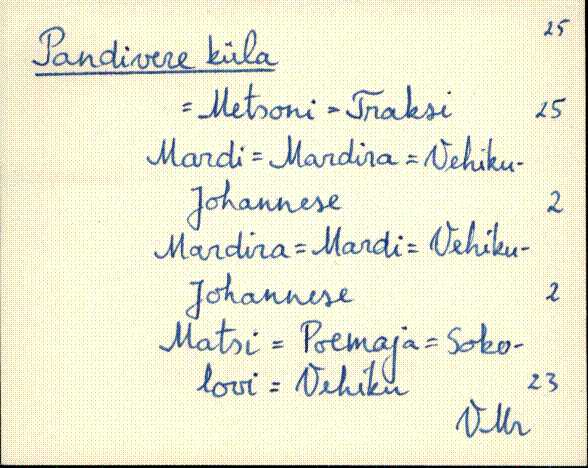 25
Pandivere küla
= Metsoni = Traksi 25
Mardi = Mardira = Vehiku-
Johannese 2
Mardira = Mardi = Vehiku-
Johannese 2
Matsi = Poemaja = Soko-
lovi = Vehiku 23
VMr